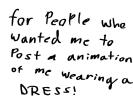 for People who
wanted me to
Post a animation
of me wearing a
DRESS!